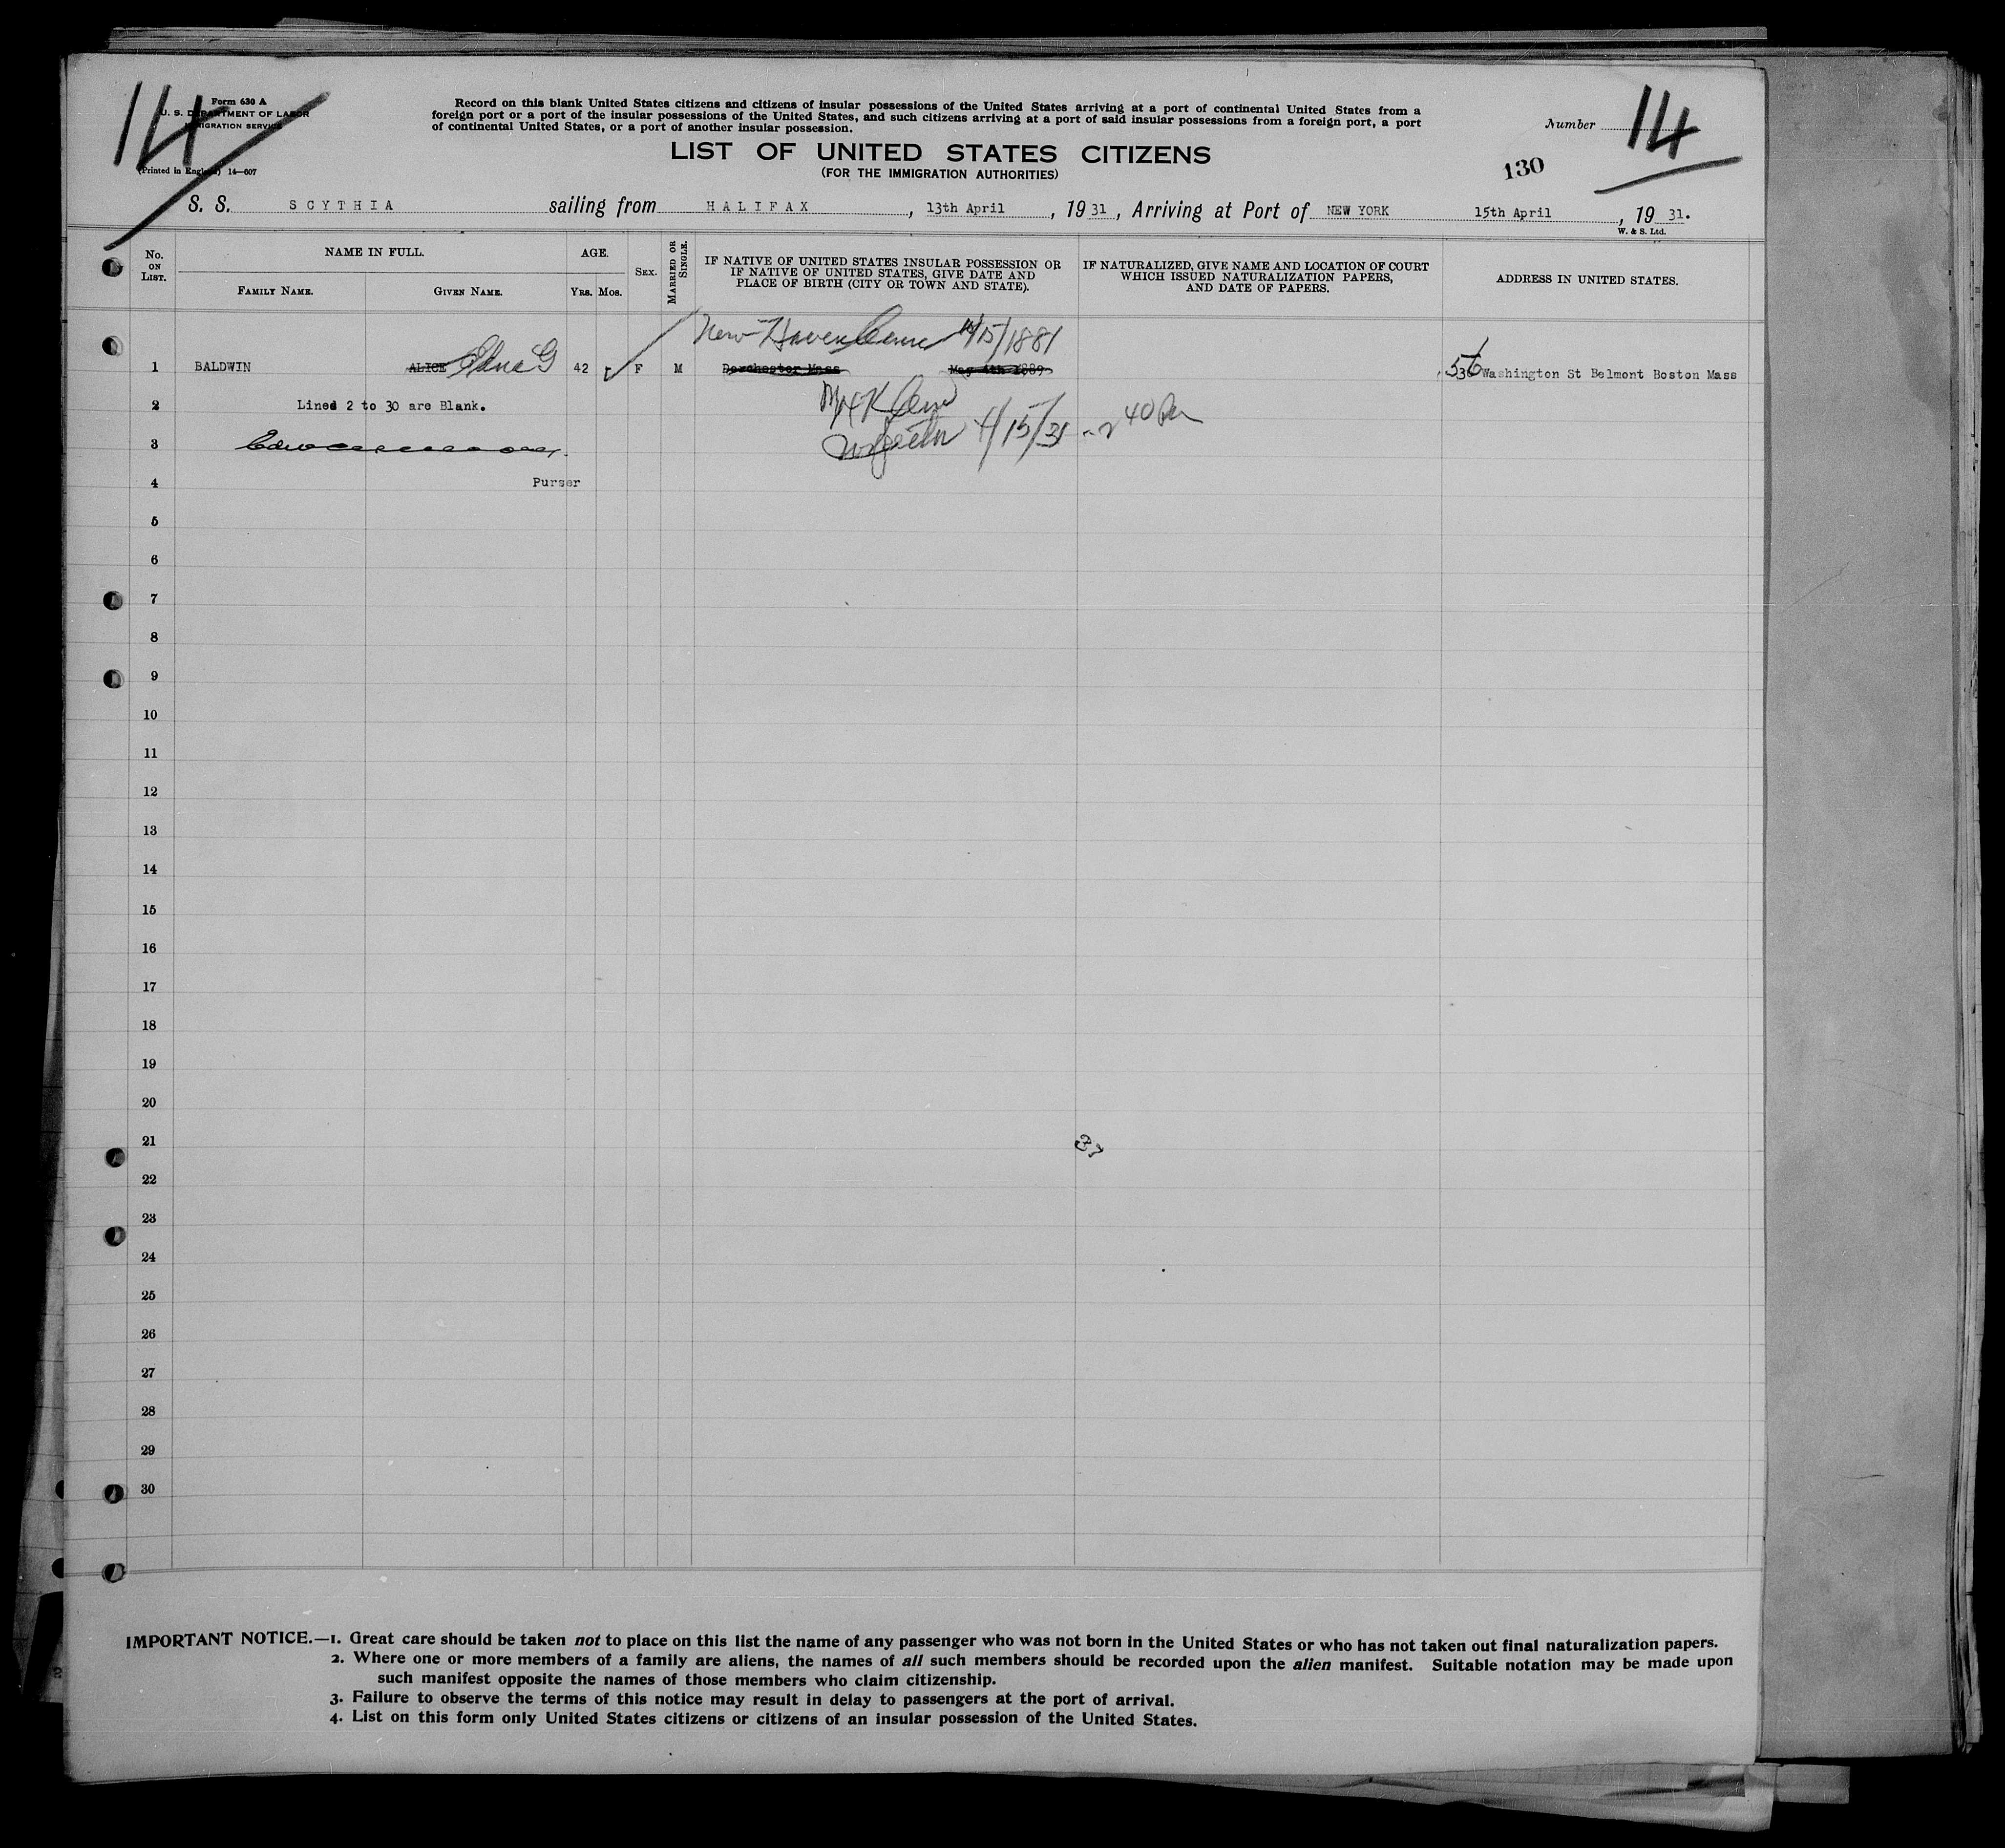 14
Form 630 A
U. S. DEPARTMENT OF LABOR
IMMIGRATION SERVICE
(Printed in England) 14—607
Record on this blank United States citizens and citizens of insular possessions of the United States arriving at a port of continental United States from a
foreign port or a port of the insular possessions of the United States, and such citizens arriving at a port of said insular possessions from a foreign port, a port
of continental United States, or a port of another insular possession.
Number 14
LIST OF UNITED STATES CITIZENS
(FOR THE IMMIGRATION AUTHORITIES)
130
S. S. SCYTHIA sailing from HALIFAX, 13th April, 1931, Arriving at Port of NEW YORK 15th April, 19 31.
W. & S. Ltd.
No. ON LIST.
NAME IN FULL.
FAMILY NAME. GIVEN NAME.
AGE.
YRS. MOS.
SEX.
MARRIED OR SINGLE.
IF NATIVE OF UNITED STATES INSULAR POSSESSION OR
IF NATIVE OF UNITED STATES, GIVE DATE AND
PLACE OF BIRTH (CITY OR TOWN AND STATE).
IF NATURALIZED, GIVE NAME AND LOCATION OF COURT
WHICH ISSUED NATURALIZATION PAPERS,
AND DATE OF PAPERS.
ADDRESS IN UNITED STATES.
New Haven Conn /15/1881
1 BALDWIN ALICE Edna G 42 F M Dorchester Mass May 4th 1889 536 Washington St Belmont Boston Mass
2 Lined 2 to 30 are Blank.
3 4/15/31
4 Purser
5
6
7
8
9
10
11
12
13
14
15
16
17
18
19
20
21 37
22
23
24
25
26
27
28
29
30
IMPORTANT NOTICE.—1. Great care should be taken not to place on this list the name of any passenger who was not born in the United States or who has not taken out final naturalization papers.
2. Where one or more members of a family are aliens, the names of all such members should be recorded upon the alien manifest. Suitable notation may be made upon
such manifest opposite the names of those members who claim citizenship.
3. Failure to observe the terms of this notice may result in delay to passengers at the port of arrival.
4. List on this form only United States citizens or citizens of an insular possession of the United States.